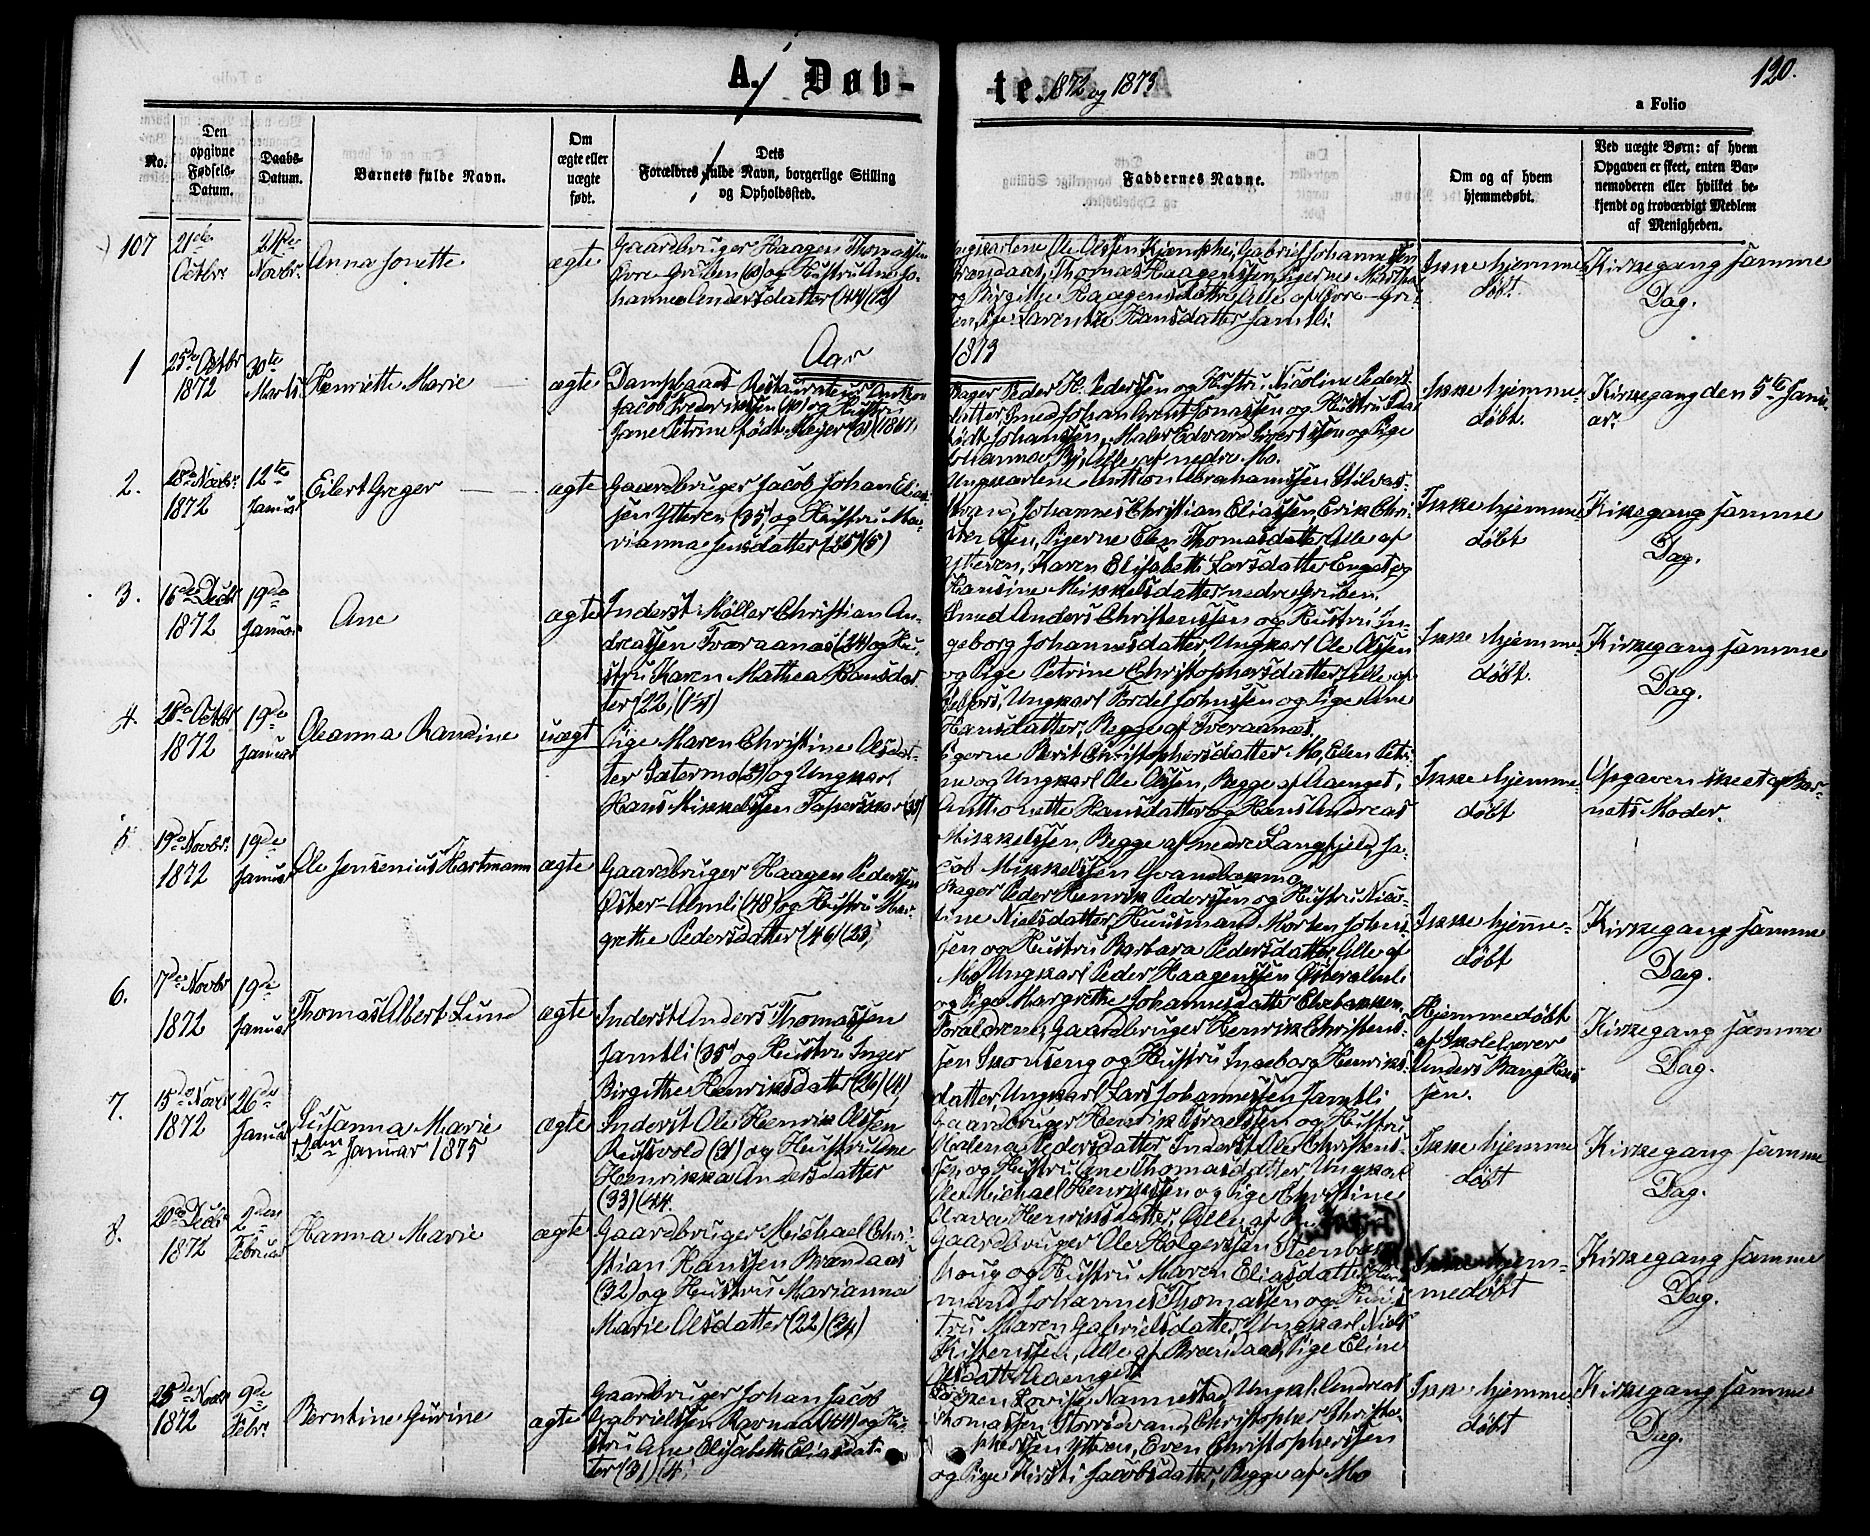 A. Døb-
te. 1872 og 1873
120.
a Folio
No.
Den opgivne Fødsels-Datum.
Daabs-Datum.
Barnets fulde Navn.
Om ægte eller uægte født.
Dets Forældres fulde Navn, borgerlige Stilling og Opholdssted.
Faddernes Navne.
Om og af hvem hjemmedøbt.
Ved uægte Børn: af hvem Opgaven er skeet, enten Barnemoderen eller hvilket bekjendt og troværdigt Medlem af Menigheden.
107
21de Octbr
24de Novbr.
Anna Jonette
ægte
Gaardbruger Haagen Thomassen
Hustru Ane Jo-
hanna Andersdatter (44) (12)
Ungkarlene Ole Olssen Kjemphei, Gabriel Johannessen
Brændaas, Thomas Haagenssen, Pigerne Martha
og Birgitte Haagensdatter Alle af
Pige Larentze Hansdatter Jamtli.
Ikke hjemme-
døbt.
Kirkegang samme
Dag.
Aar 1873
1
25de Octbr
1872
30te
Marts
Henriette Marie
ægte
Dampbaads Restaurateur
Jacob Frederikssen (40) og Hustru
Jane Petrine født Meyer (31)
Bager Peder H. Pederssen og Hustru Nicoline Peders-
datter Smed Johan Arent Jonassen og Hustru
født Johanssen, Maler Edvard Sivertssen og Pige
Alle af nedre Mo.
Ikke hjemme-
døbt.
Kirkegang den 5te Janu-
ar.
2.
28de Novbr.
1872
12te
Januar
Eilert Greger
ægte
Gaardbruger Jacob Johan Elias-
sen Ytteren (35) og Hustru Ma-
rianna Jensdatter (25) (5)
Ungkarlene Anton Abrahamssen Stilvas-
Johannes Christian Eliassen, Erik Chri-
Pigerne Elen Thomasdatter Alle af
Ytteren, Karen Elisabeth Larsdatter Enget og
Hansine Mikkelsdatter nedre Gruben.
Ikke hjemme-
døbt
Kirkegang samme
Dag.
3.
16de Decbr
1872
19de
Januar
Ane
ægte
Inderst Møller Christian An-
dreassen Tværaanæs (24) og Hu-
stru Karen Mathea Hansdat-
ter (22)
Smed Anders Christenssen og Hustru In-
geborg Johannesdatter, Ungkarl Ole Olssen
og Pige Petrine Christophersdatter, Alle af
Selfors, Ungkarl Tordel Johnssen og Pige Ane
Hansdatter, Begge af Tveraanæs.
Ikke hjemme-
døbt.
Kirkegang samme
Dag.
4.
28de Octbr
1872
19de
Januar
Oleanna Randine
uægt
Pige Maren Christine Olsdat-
ter Sætermo og Ungkarl
Hans Mikkelssen Tapeskar
Pigerne Berit Christophersdatter Mo, Elen Petri-
ne og Ungkarl Ole Olssen, Begge af Aaenget,
Anthonette Hansdatter og Hans Andreas
Mikkelssen, Begge af nedre Langfjeld, Ja-
cob Mikkelssen
Ikke hjemme
døbt
Opgaven skeet af Bar-
nets Moder.
5
19de Novbr.
1872
19de
Januar
Ole Jensenius Hartmann
ægte
Gaardbruger Haagen Pederssen
Øster-Almli (48) og Hustru Mar-
grethe Pedersdatter (46) (23)
Bager Peder Henrik Pederssen og Hustru Nico-
line Nielsdatter, Huusmand Morten Johns-
sen og Hustru Barbara Pedersdatter, Alle af
Mo, Ungkarl Peder Haagenssen Østeralmli
og Pige Margrethe Johannesdatter
Ikke hjemme-
døbt
Kirkegang samme
Dag.
6.
7de Novbr
1872
19de
Januar
Thomas Albert Lund
ægte
Inderst Anders Thomassen
Jamtli (35) og Hustru Inger
Birgitha Henriksdatter (26) (4)
Forældrene, Gaardbruger Henrik Christens-
sen Skonseng og Hustru Ingeborg Henriks-
datter, Ungkarl Lars Johannessen Jamtli
Hjemmedøbt
af Skolelærer
Anders Bang Hans-
sen.
Kirkegang samme
Dag.
7.
15de Novbr
1872
26de
Januar
Susanna Marie
Januar 1875
ægte
Inderst Ole Henrik Olssen
Rusvold (31) og Hustru Ane
Henrikka Andersdatter
(33) (44.
Gaardbruger Henrik Israelssen og Hustru
Malena Pedersdatter, Inderst Ole Christens-
sen og Hustru Ane Thomasdatter, Ungkarl
Ole Michael Henrikssen og Pige Christine
Olava Henriksdatter, Alle af
Ikke hjemme
døbt
Kirkegang samme
Dag.
8.
20de Decbr
1872
2den
Februar
Hanna Marie
ægte
Gaardbruger Michael Chri-
stian Hanssen Brændaas
(32) og Hustru Marianna
Marie Olsdatter (22) (3/4)
Gaardbruger Ole Holgerssen Steenbæk-
houg og Hustru Maren Eliasdatter,
mand Johannes Thomassen og Hus-
tru Maren Gabrielsdatter, Ungkarl Niels
Kristenssen, Alle af Brændaas, Pige Eline
Olsdatter Aaenget
Ikke hjem-
medøbt
Kirkegang samme
Dag.
9
25de Novbr
1872
9de
Febr.
Berntine Gurine
ægte
Gaardbruger Johan Jacob
Gabrielssen Ravndal og Hu-
stru Ane Elisabeth Eliasdat-
ter (31) (4.
Lovise Nannestad, Ungkl. Andreas
Thomassen Storrisvand, Christopher Christo-
pherssen Ytteren, Even Christopherssen
og Pige Kirsti Jacobsdatter, Begge af Mo
Ikke hjemme-
døbt
Kirkegang samme
Dag.